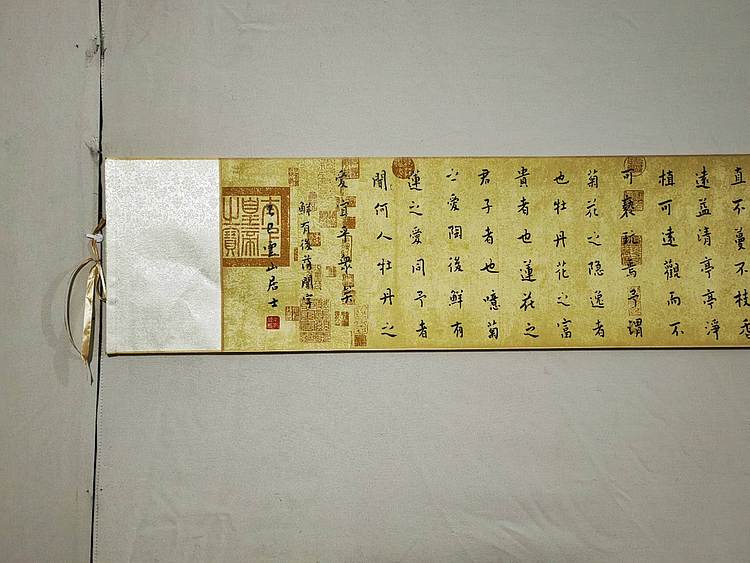 直不蔓不枝香
遠益清亭亭淨
植可遠觀而不
可褻玩焉予謂
菊花之隱逸者
也牡丹花之富
貴者也蓮花之
君子者也噫菊
之愛陶後鮮有
蓮之愛同予者
聞何人牡丹之
愛宜乎眾矣
鮮有後落聞字
巳雲山居士